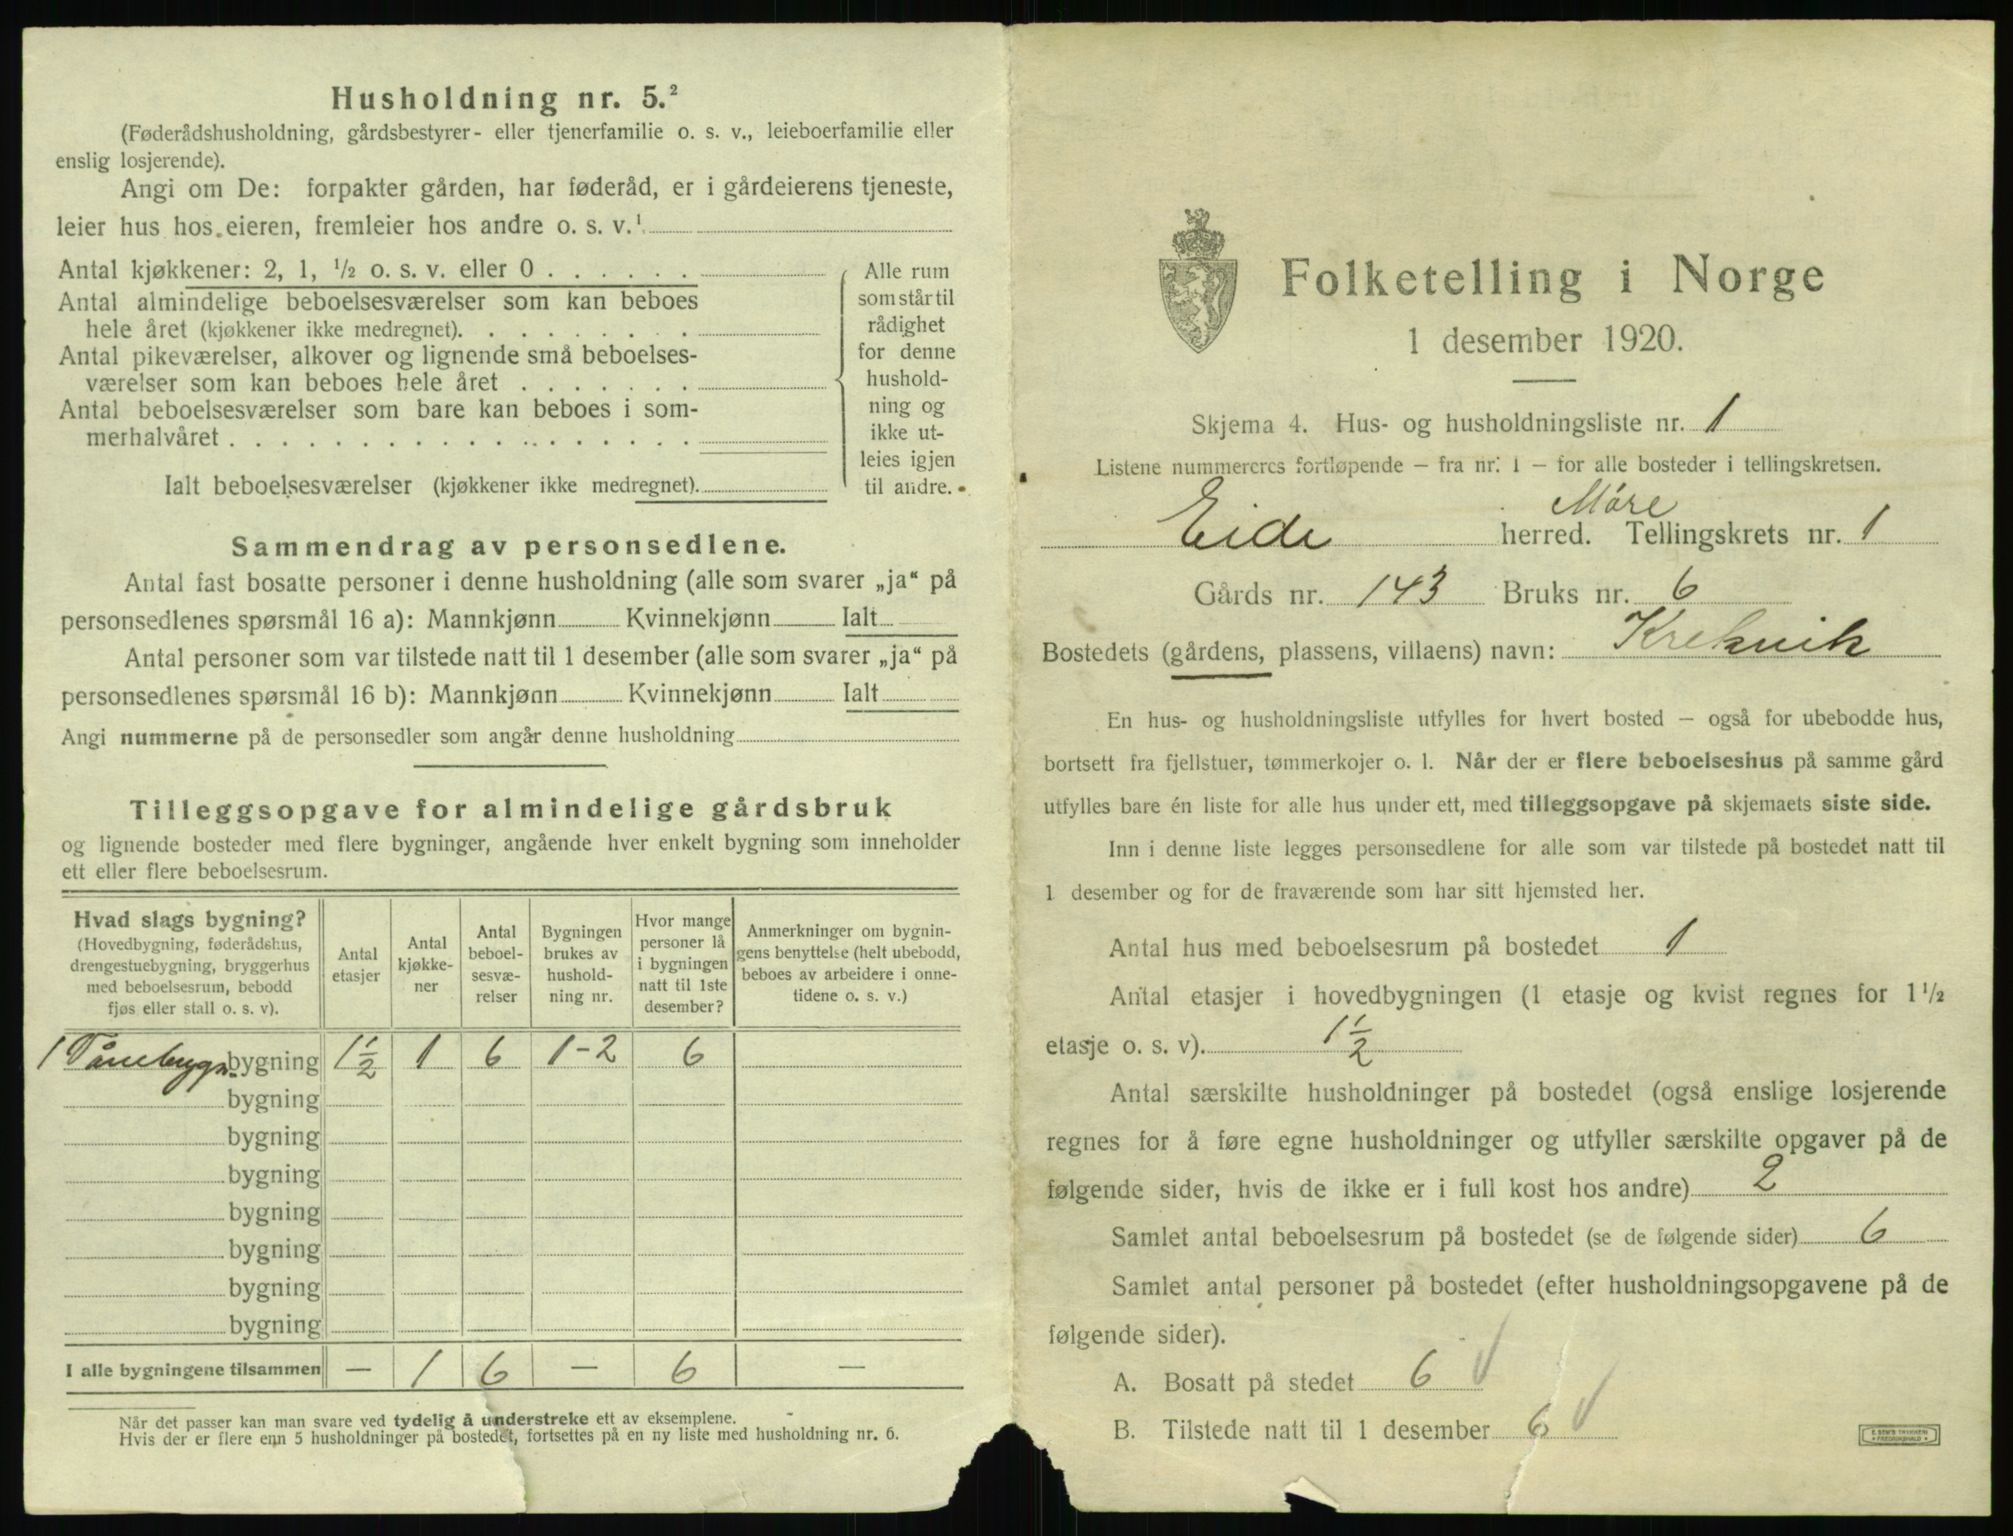 Husholdning nr. 5.²
(Føderådshusholdning, gårdsbestyrer- eller tjenerfamilie o. s. v., leieboerfamilie eller
enslig losjerende).
Angi om De: forpakter gården, har føderåd, er i gårdeierens tjeneste,
leier hus hos eieren, fremleier hos andre o. s. v.¹
Antal kjøkkener: 2, 1, ½ o. s. v. eller 0 . . . . . .
Antal almindelige beboelsesværelser som kan beboes
hele året (kjøkkener ikke medregnet). . . . . . . . .
Antal pikeværelser, alkover og lignende små beboelses-
værelser som kan beboes hele året . . . . . . .
Antal beboelsesværelser som bare kan beboes i som-
merhalvåret . . . . . . . . . . . . . . . . . .
Ialt beboelsesværelser (kjøkkener ikke medregnet).
Alle rum
som står til
rådighet
for denne
hushold-
ning og
ikke ut-
leies igjen
til andre.
Sammendrag av personsedlene.
Antal fast bosatte personer i denne husholdning (alle som svarer „ja“ på
personsedlenes spørsmål 16 a): Mannkjønn Kvinnekjønn Ialt
Antal personer som var tilstede natt til 1 desember (alle som svarer „ja“ på
personsedlenes spørsmål 16 b): Mannkjønn Kvinnekjønn Ialt
Angi nummerne på de personsedler som angår denne husholdning
Tilleggsopgave for almindelige gårdsbruk
og lignende bosteder med flere bygninger, angående hver enkelt bygning som inneholder
ett eller flere beboelsesrum.
Hvad slags bygning?
(Hovedbygning, føderådshus,
drengestuebygning, bryggerhus
med beboelsesrum, bebodd
fjøs eller stall o. s. v).
Antal
etasjer
Antal
kjøkke-
ner
Antal
beboel-
sesvæ-
relser
Bygningen
brukes av
hushold-
ning nr.
Hvor mange
personer lå
i bygningen
natt til 1ste
desember?
Anmerkninger om bygnin-
gens benyttelse (helt ubebodd,
beboes av arbeidere i onne-
tidene o. s. v.)
1 bygning 1½ 1 6 1-2 6
bygning
bygning
bygning
bygning
bygning
bygning
bygning
I alle bygningene tilsammen — 1 6 — 6 —
Når det passer kan man svare ved tydelig å understreke ett av eksemplene.
Hvis der er flere enn 5 husholdninger på bostedet, fortsettes på en ny liste med husholdning nr. 6.
Folketelling i Norge
1 desember 1920.
Skjema 4. Hus- og husholdningsliste nr. 1
Listene nummereres fortløpende – fra nr. 1 – for alle bosteder i tellingskretsen.
Møre
Eide herred. Tellingskrets nr. 1
Gårds nr. 143 Bruks nr. 6
Bostedets (gårdens, plassens, villaens) navn: Krekvik
En hus- og husholdningsliste utfylles for hvert bosted – også for ubebodde hus,
bortsett fra fjellstuer, tømmerkojer o. l. Når der er flere beboelseshus på samme gård
utfylles bare én liste for alle hus under ett, med tilleggsopgave på skjemaets siste side.
Inn i denne liste legges personsedlene for alle som var tilstede på bostedet natt til
1 desember og for de fraværende som har sitt hjemsted her.
Antal hus med beboelsesrum på bostedet 1
Antal etasjer i hovedbygningen (1 etasje og kvist regnes for 1½
etasje o. s. v). 1½
Antal særskilte husholdninger på bostedet (også enslige losjerende
regnes for å føre egne husholdninger og utfyller særskilte opgaver på de
følgende sider, hvis de ikke er i full kost hos andre) 2
Samlet antal beboelsesrum på bostedet (se de følgende sider) 6
Samlet antal personer på bostedet (efter husholdningsopgavene på de
følgende sider).
A. Bosatt på stedet 6
B. Tilstede natt til 1 desember 6
E. SEM'S TRYKKERI
FREDRIKSHALD